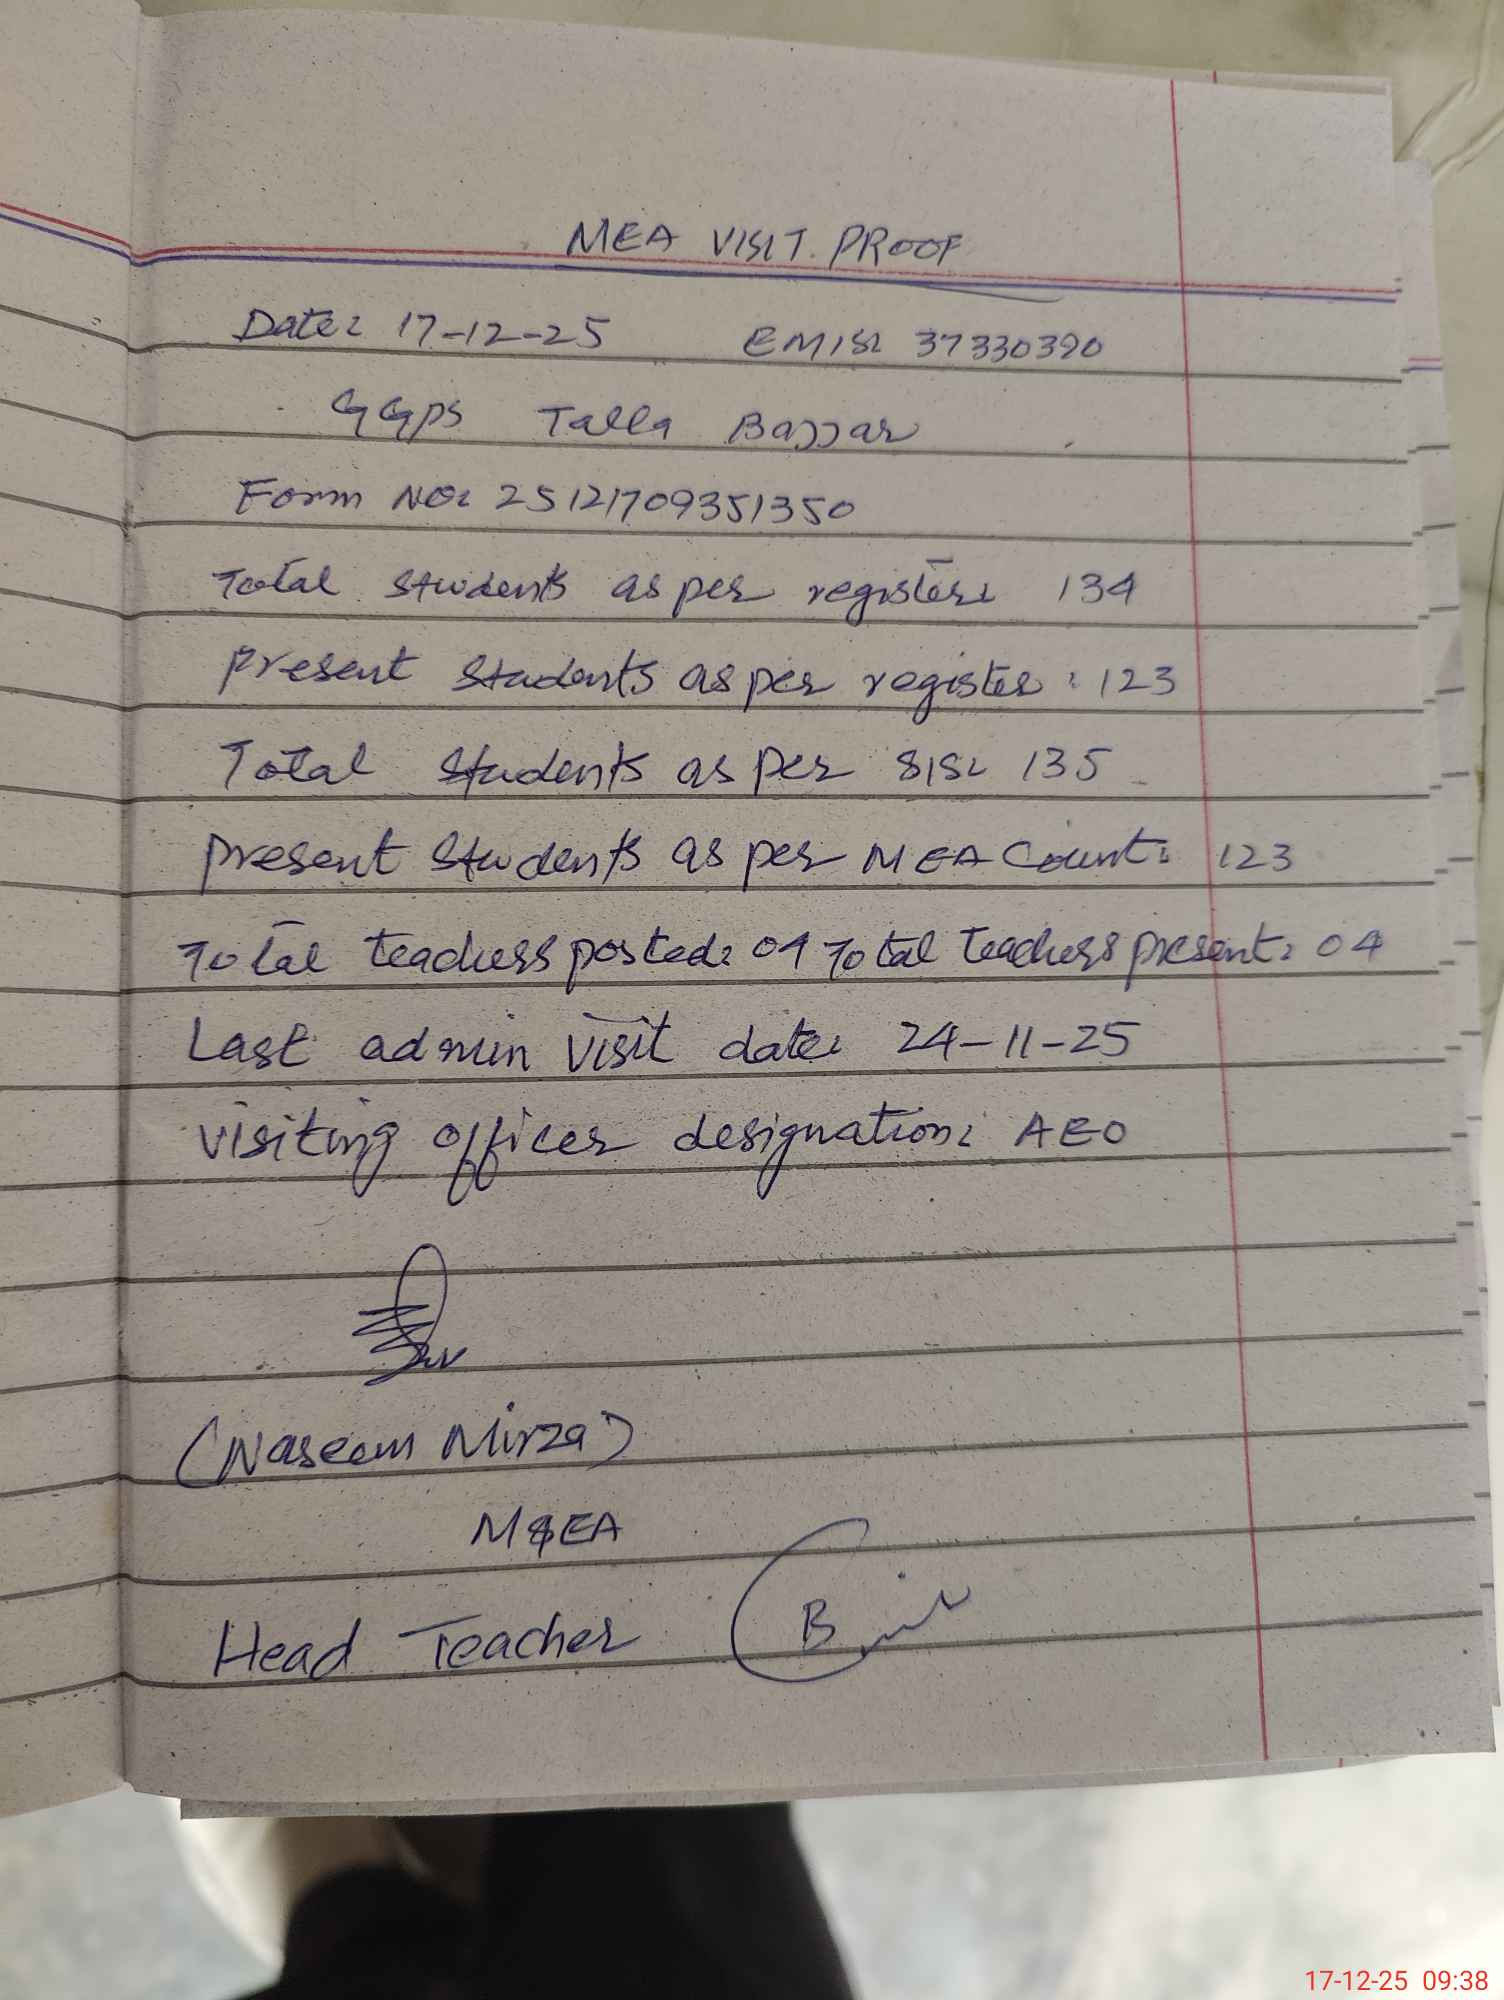 MEA VISIT. PROOF
Date: 17-12-25 EMIS: 37330390
GGPS Talla Bajjar
Form No: 25121709351350
Total students as per register: 134
Present students as per register: 123
Total students as per SIS: 135
Present students as per MEA Count: 123
Total teachers posted: 04 Total teachers present: 04
Last admin visit date: 24-11-25
visiting officer designation: AEO
(Naseem Mirza)
M&EA
Head Teacher
17-12-25 09:38